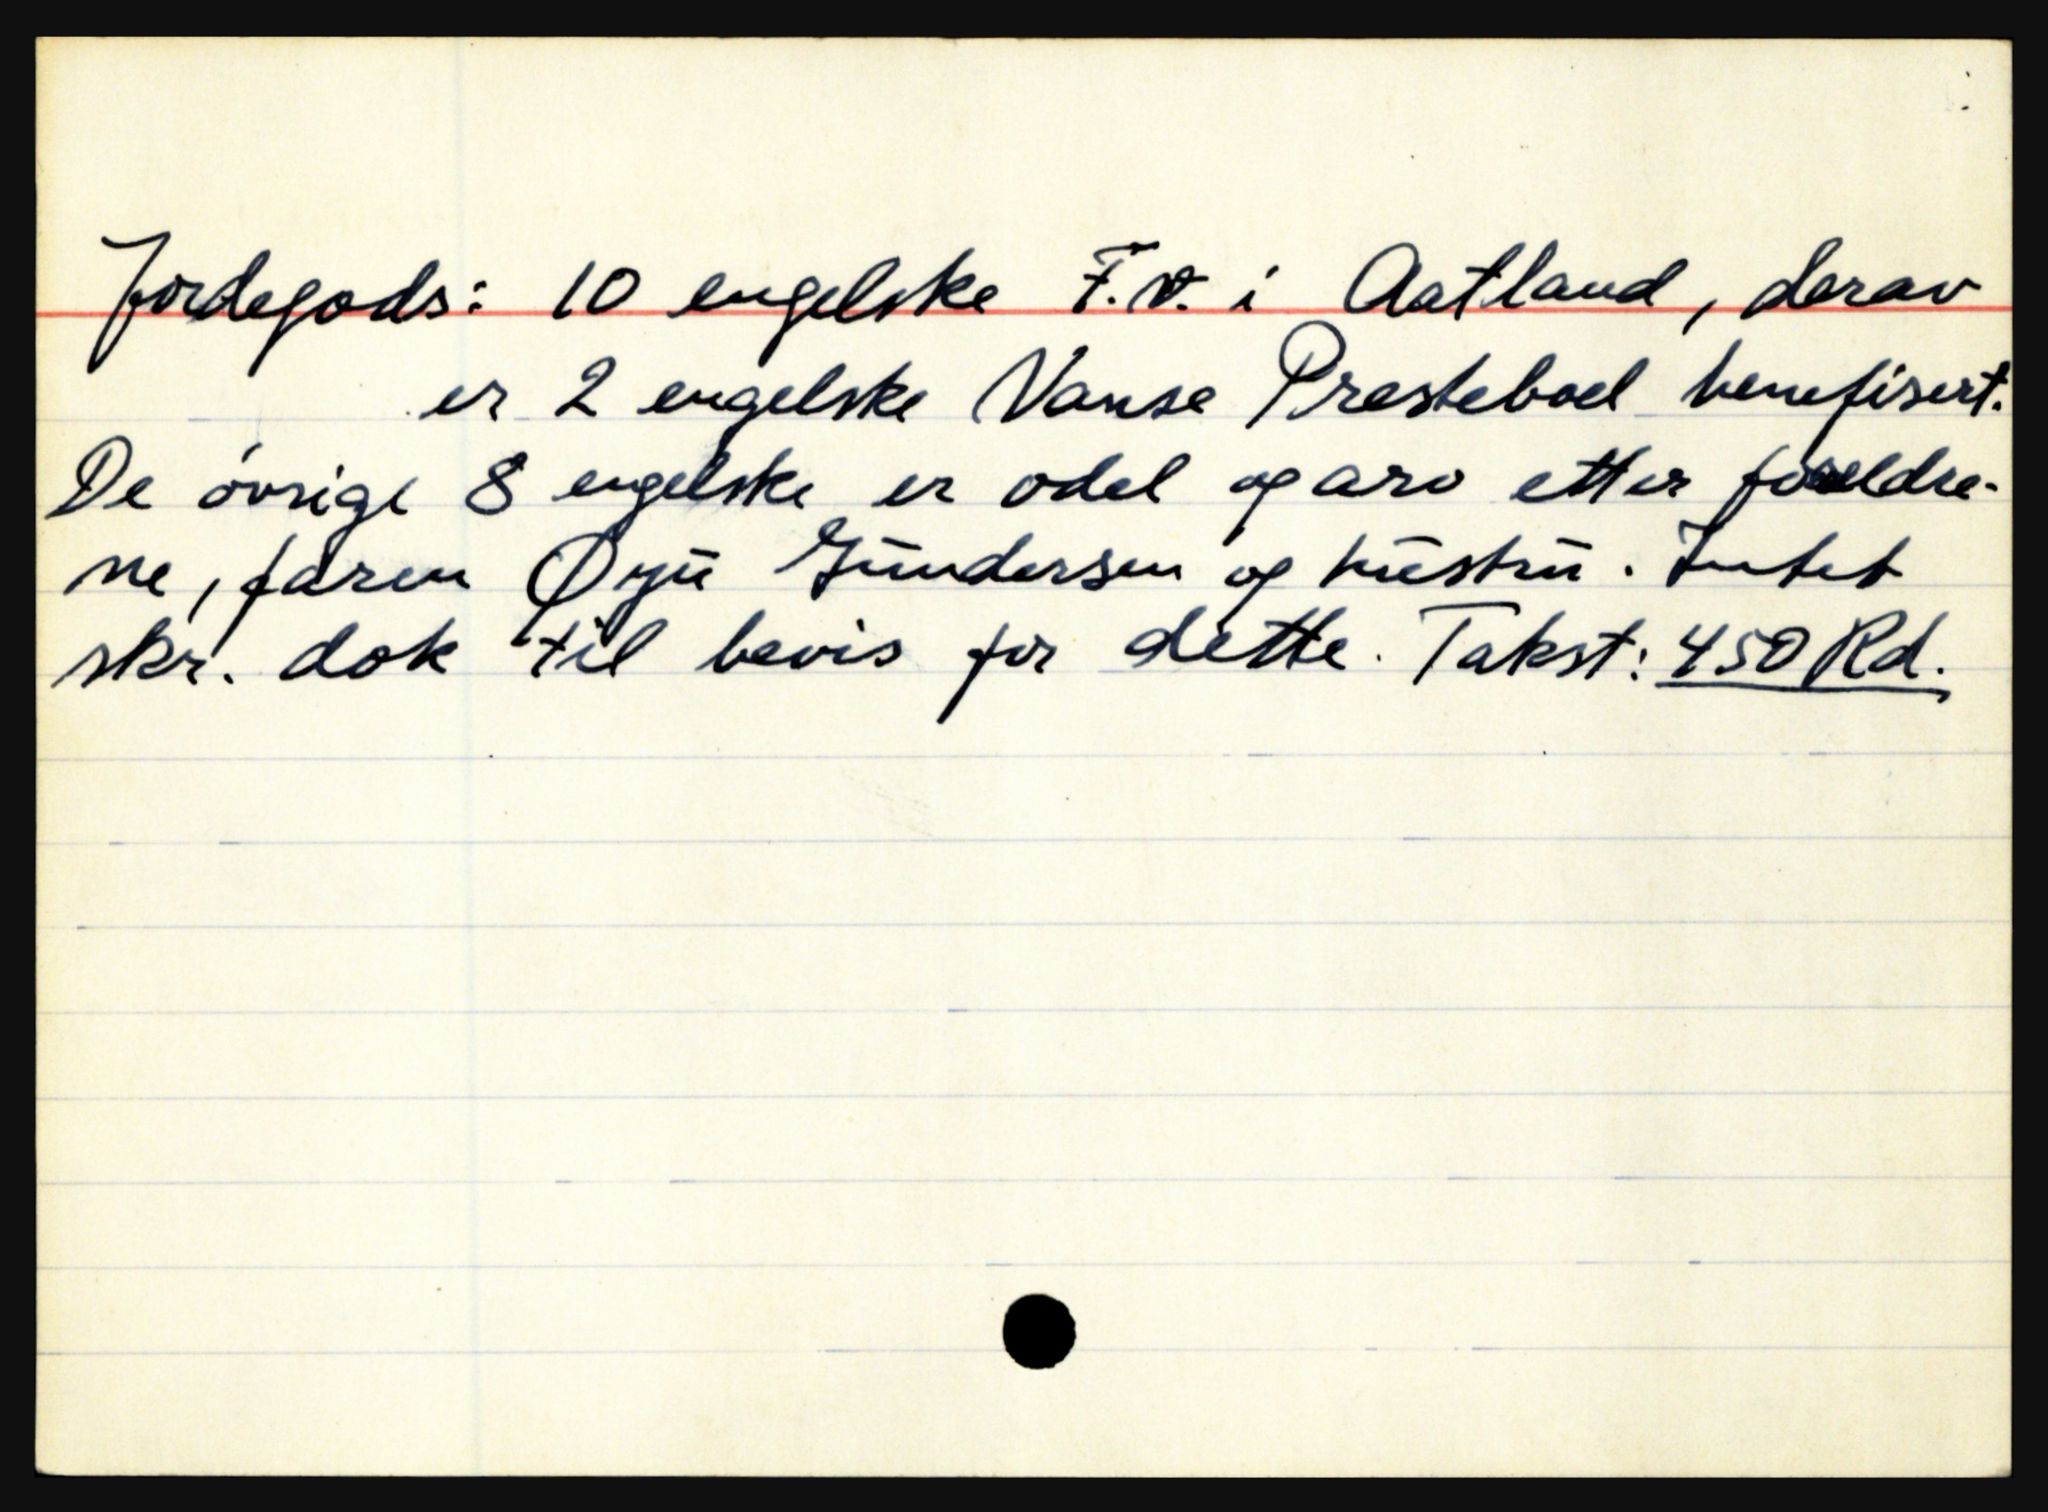 Jordegods: 10 engelske F.v. i Aatland, derav
er 2 engelske Vanse Presteboel benefisert.
De övrige 8 engelske er odel og arv etter foreldre-
ne, faren Øyü Gündersen og hüstrü. Intet
skr. dok til bevis for dette. Takst: 450 Rd.